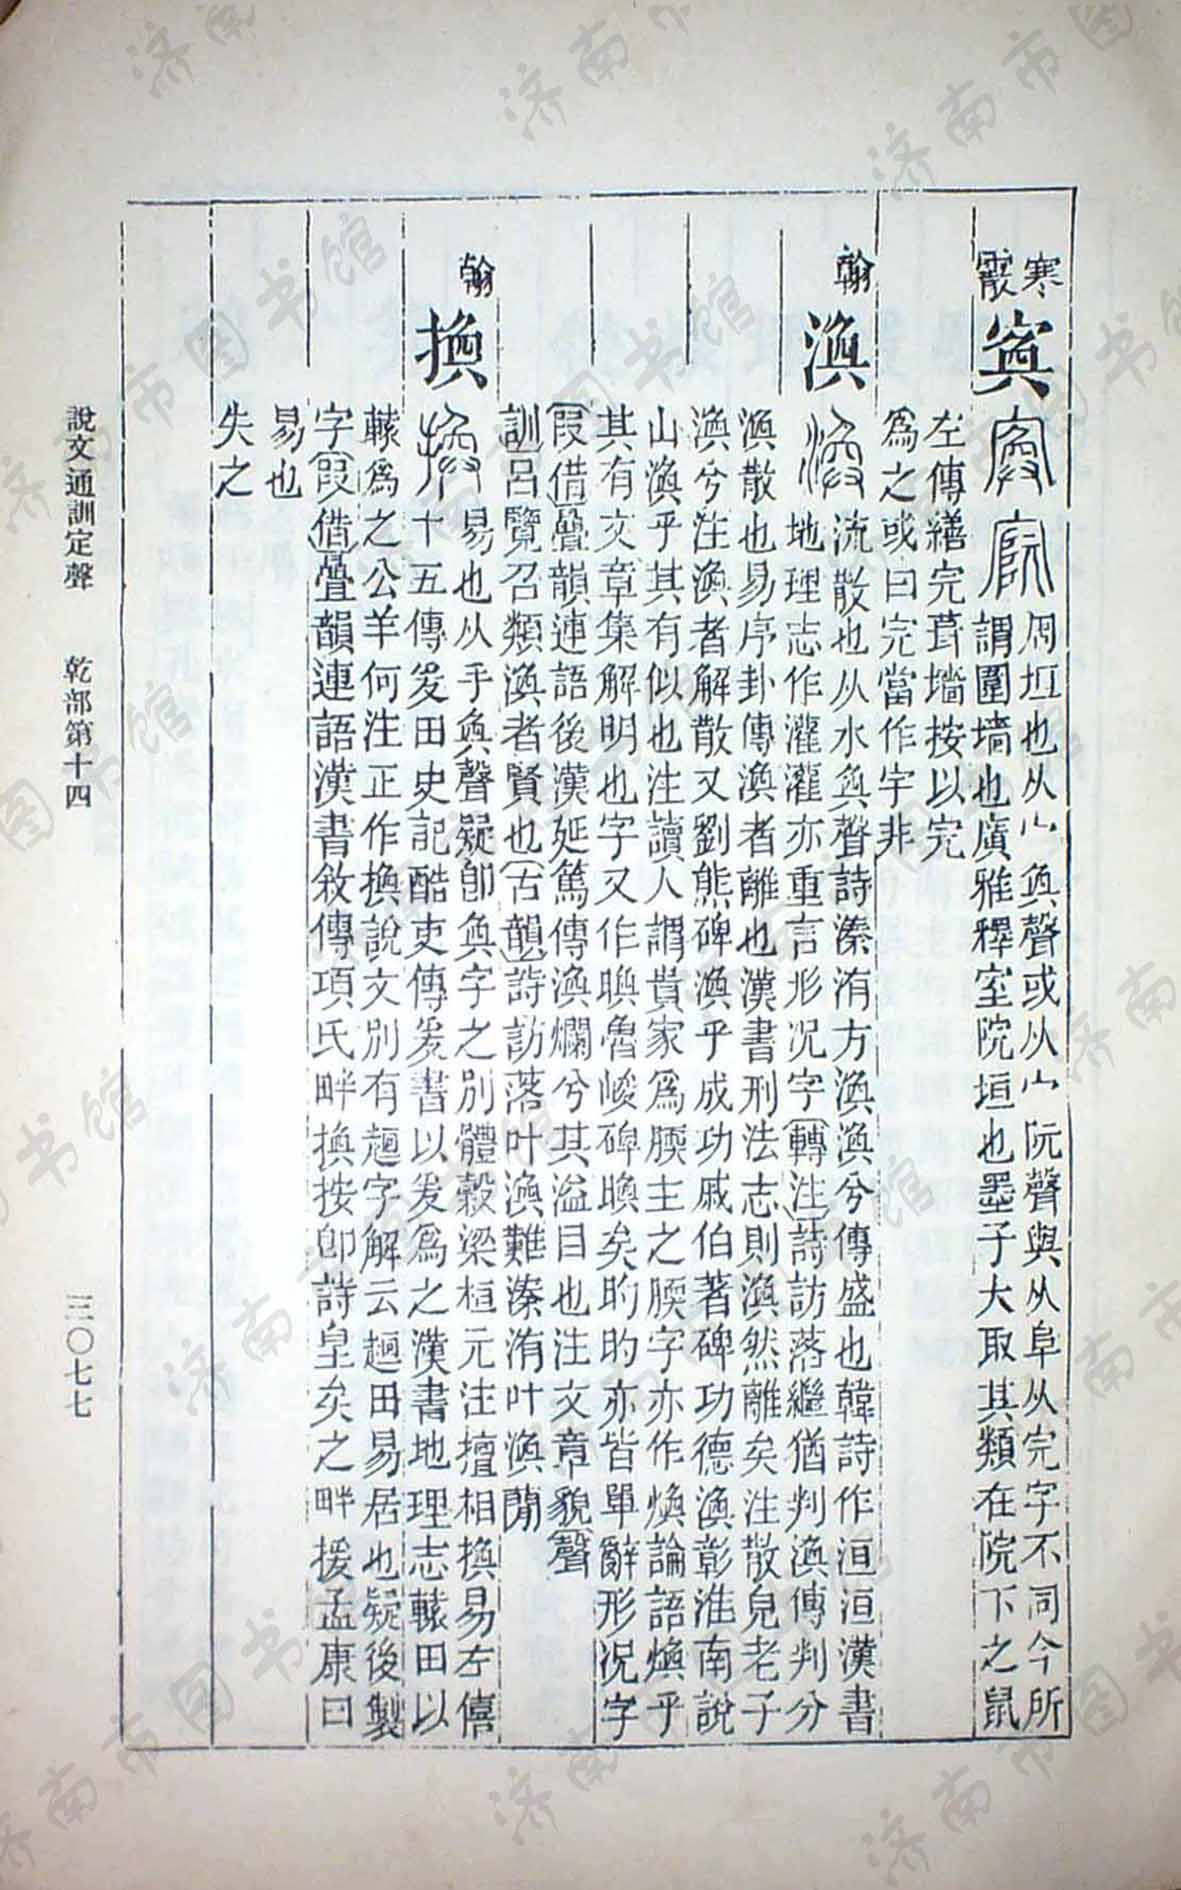 寒
霰
寏
周垣也从宀奐聲或从宀阮聲與从阜从完字不同今所
謂圍墻也廣雅釋室院垣也墨子大取其類在院下之鼠
左傳繕完葺墻按以完
為之或曰完當作宇非
翰
渙
流散也从水奐聲詩溱洧方渙渙兮傳盛也韓詩作洹洹漢書
地理志作灌灌亦重言形况字(轉注)詩訪落繼猶判渙傳判分
渙散也易序卦傳渙者離也漢書刑法志則渙然離矣注散皃老子
渙兮注渙者解散又劉熊碑渙乎成功戚伯著碑功德渙彰淮南說
山渙乎其有似也注讀人謂貴家為腝主之腝字亦作煥論語煥乎
其有文章集解明也字又作䀓魯峻碑䀓矣旳旳亦皆單辭形况字
(叚借)疊韻連語後漢延篤傳渙爛兮其溢目也注文章貌(聲
訓)呂覽召類渙者賢也(古韻)詩訪落叶渙難溱洧叶渙蕑
翰
換
易也从手奐聲疑卽奐字之別體穀梁桓元注擅相換易左僖
十五傳爰田史記酷吏傳爰書以爰為之漢書地理志轅田以
轅為之公羊何注正作換說文別有䞰字解云䞰田易居也疑後製
字(叚借)疊韻連語漢書敘傳項氏畔換按卽詩皇矣之畔援孟康曰
易也
失之
說文通訓定聲　乾部第十四　三〇七七
济南市图书馆